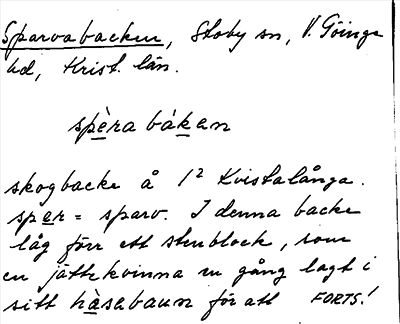 Sparvabacken, Stoby sn, V. Göinge
hd, Krist. län.
spèra bákan
skogbacke å 1² Kvistalånga.
sper = sparv. I denna backe
låg förr ett stenblock, som
en jättekvinna en gång lagt i
sitt håsabaun för att FORTS!